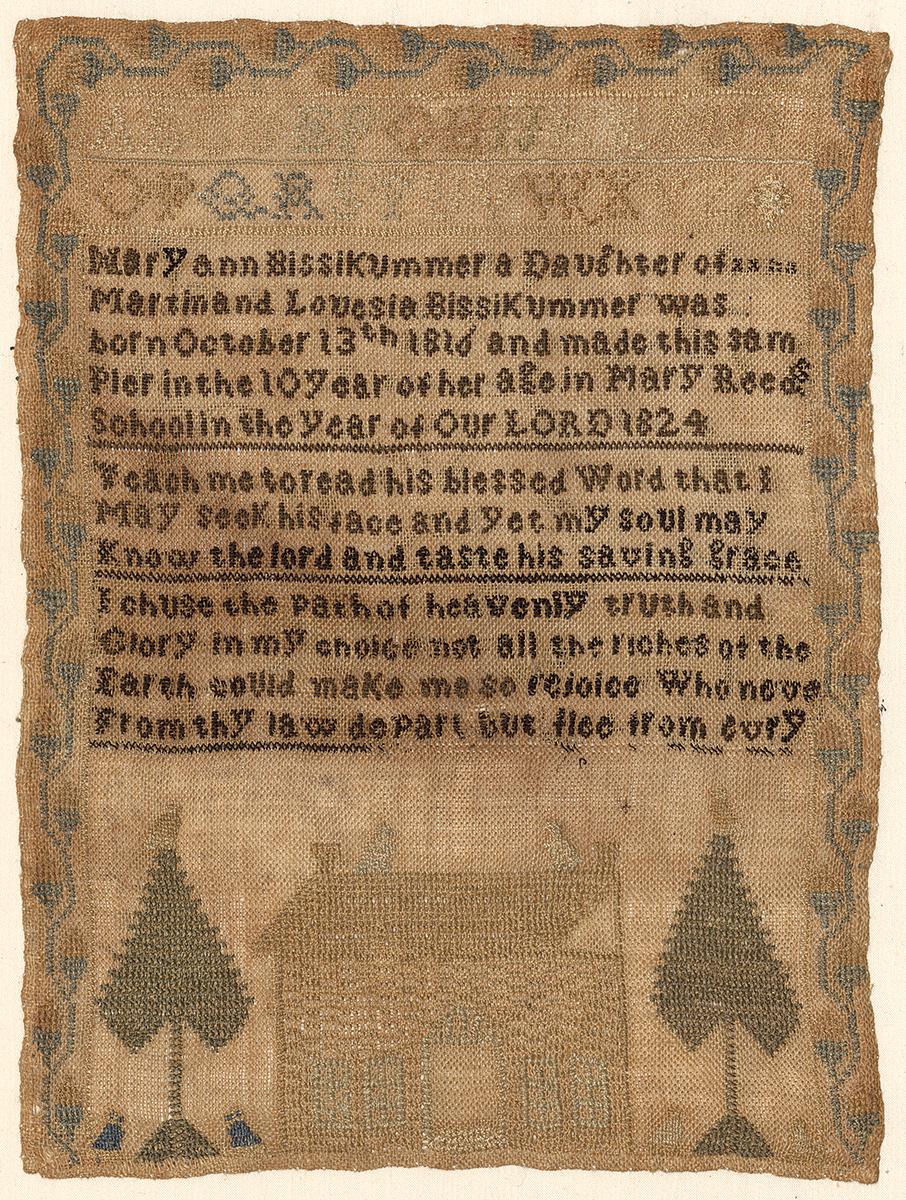 O P Q R S T W X
Mary ann Bissikummer a Daughter of
Martin and Lovesia Bissikummer was
born October 13th 1816 and made this sam
Pler in the 10 year of her age in Mary Reeds
School in the Year of Our LORD 1824
Teach me to read his blessed Word that I
May seek his face and yet my soul may
Know the lord and taste his saving grace
I chuse the path of heavenly truth and
Glory in my choice not all the riches of the
Earth could make me so rejoice Who neve
From thy law depart but flee from evry